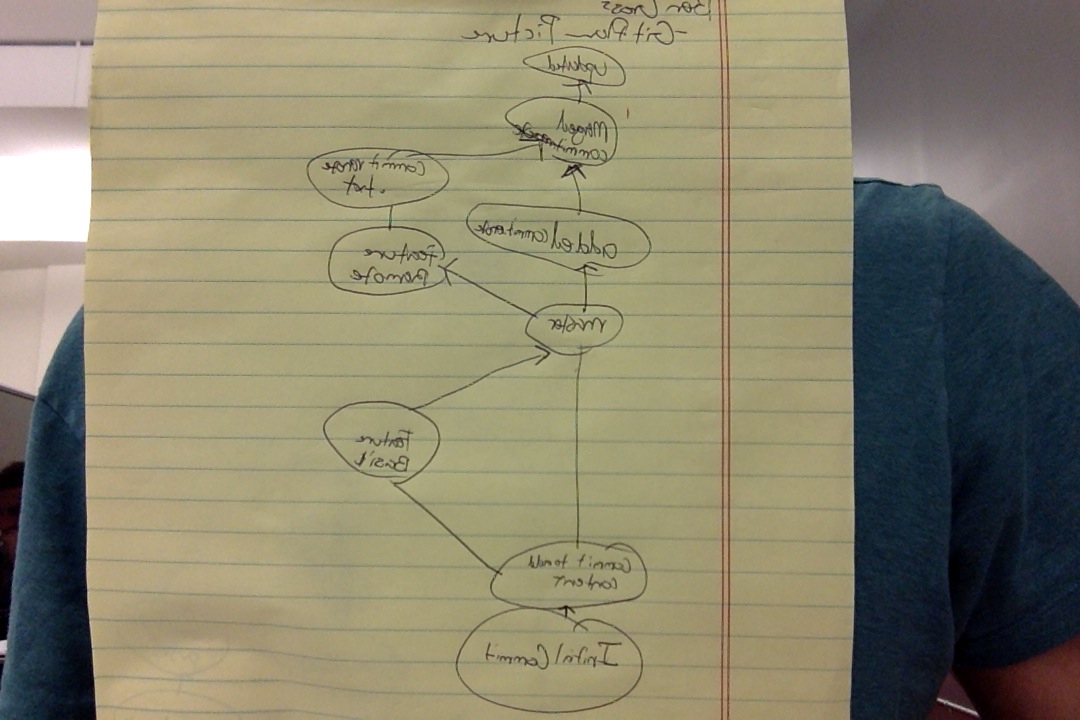 Ben Cross
-Git Plan Picture
updated
Merged
commit
Commit remote
.txt
added
Feature
remote
Master
Feature
Basic
Commit to add
content
Initial Commit